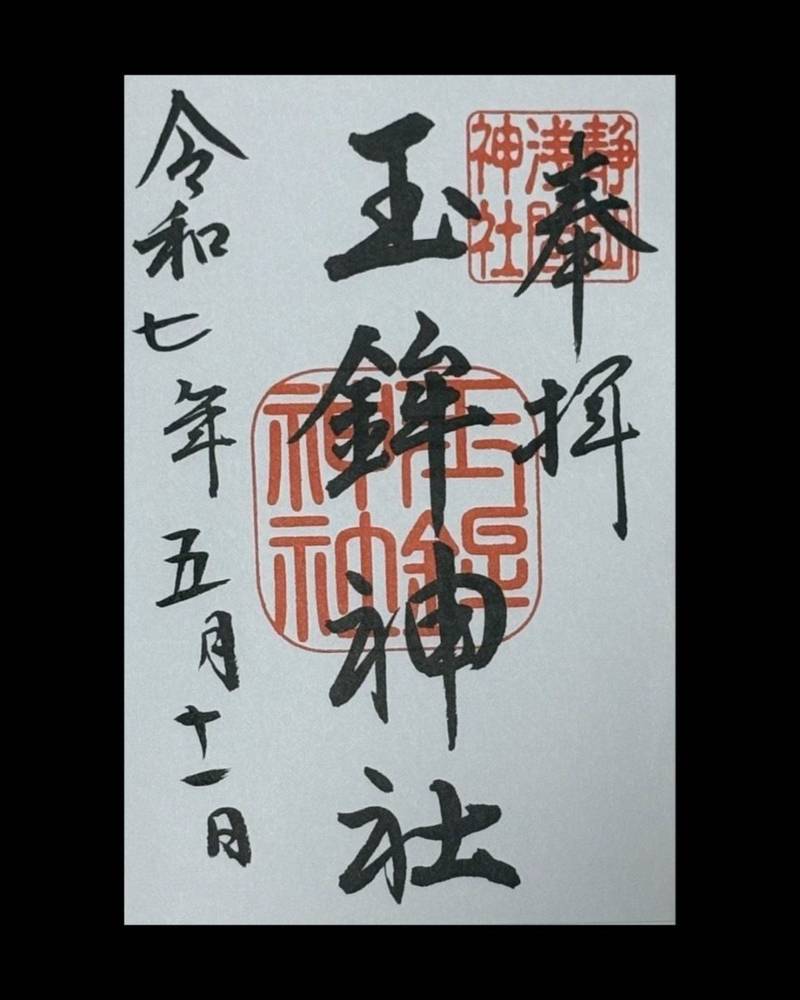 奉拝
静岡
浅間
神社
玉鉾神社
玉鉾
神社
令和七年五月十一日